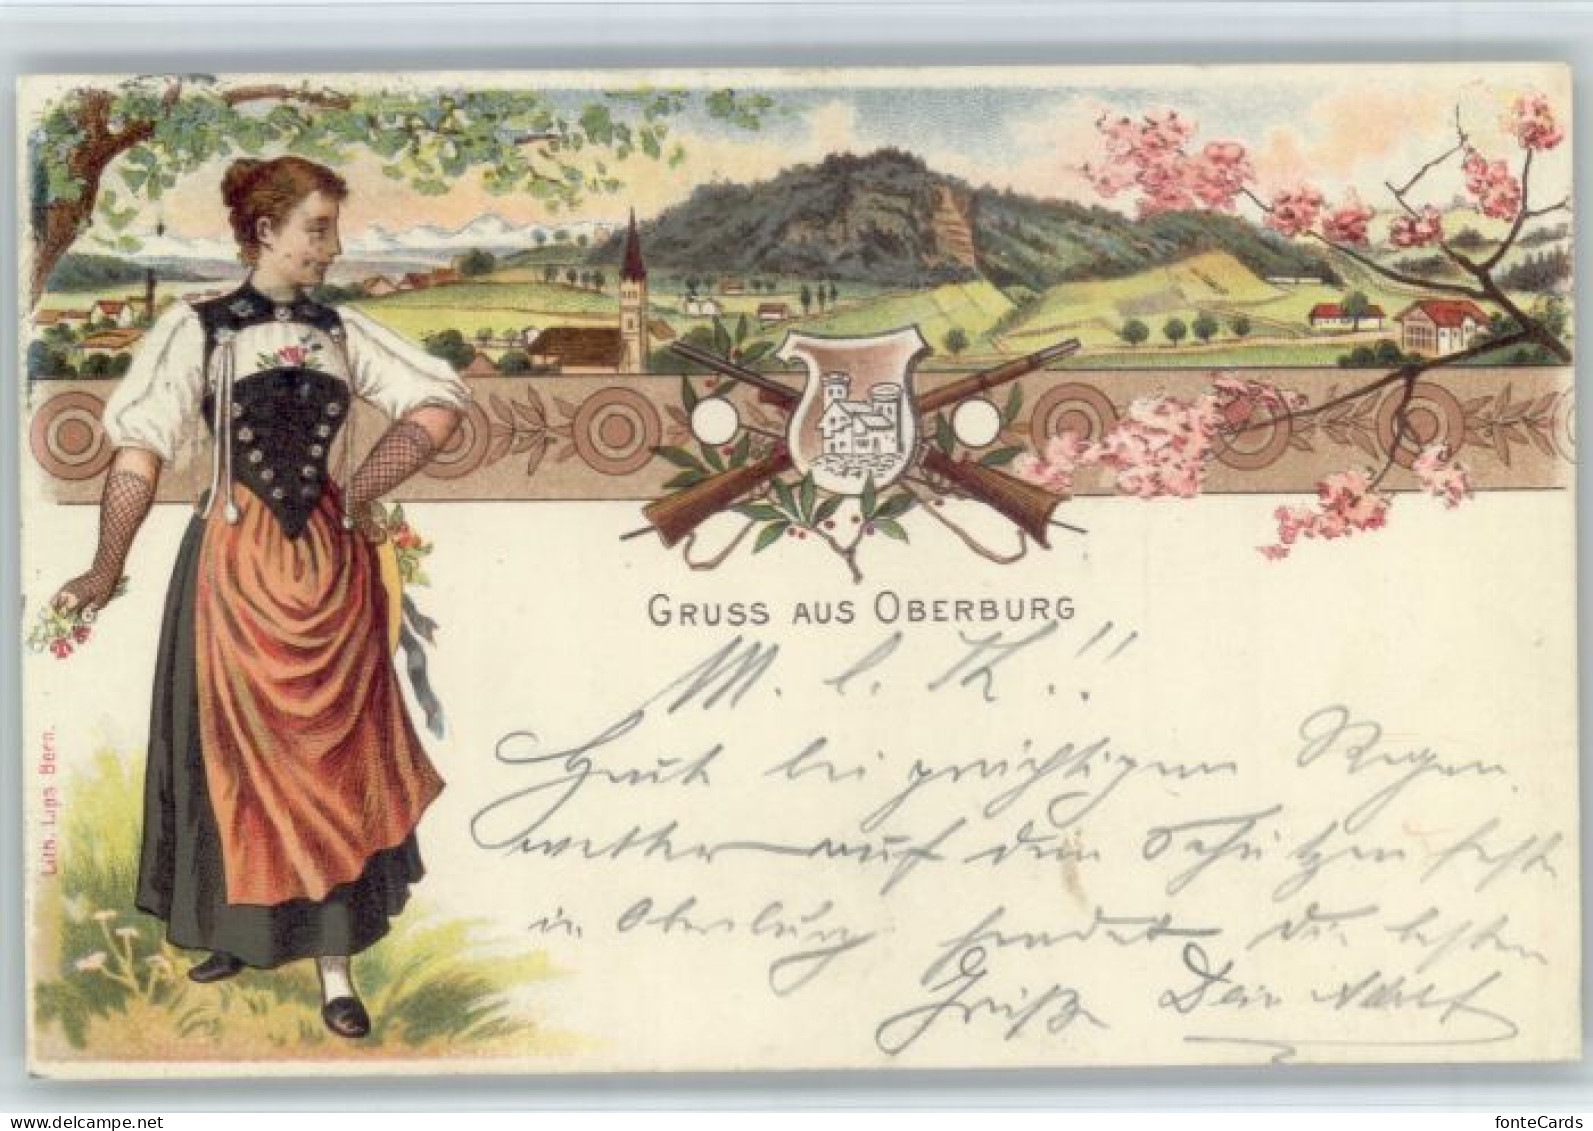 GRUSS AUS OBERBURG
M. l. K.!!
Heute bei prächtigem Regen-
wetter auf dem Schützenfeste
in Oberburg sendet die besten
Grüße Dein Adolf
Lith. Lips Bern.
fonteCards
www.delcampe.net